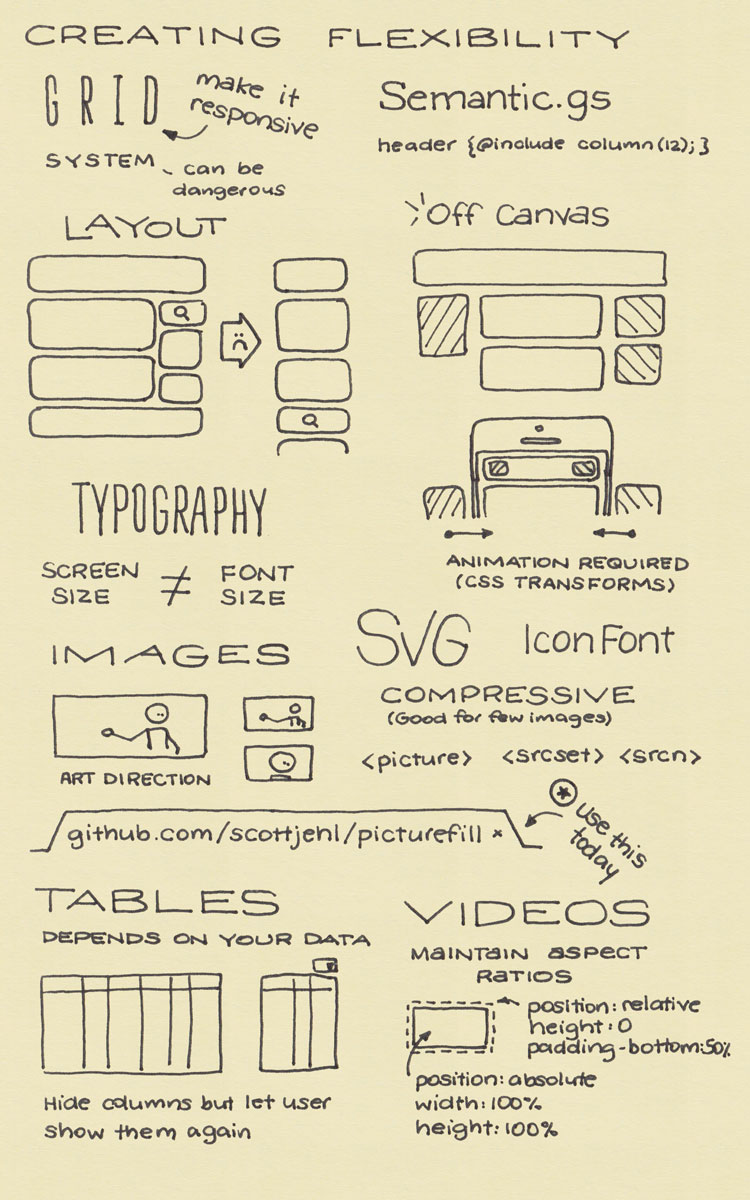 CREATING FLEXIBILITY
GRID
make it
responsive
SYSTEM
can be
dangerous
Semantic.gs
header {@include column(12);}
LAYOUT
Off Canvas
ANIMATION REQUIRED
(CSS TRANSFORMS)
TYPOGRAPHY
SCREEN SIZE ≠ FONT SIZE
IMAGES
ART DIRECTION
SVG
Icon Font
COMPRESSIVE
(Good for few images)
<picture> <srcset> <srcn>
github.com/scottjehl/picturefill ×
use this
today
TABLES
DEPENDS ON YOUR DATA
Hide columns but let user
show them again
VIDEOS
MAINTAIN ASPECT
RATIOS
position: relative
height: 0
padding-bottom: 50%
position: absolute
width: 100%
height: 100%